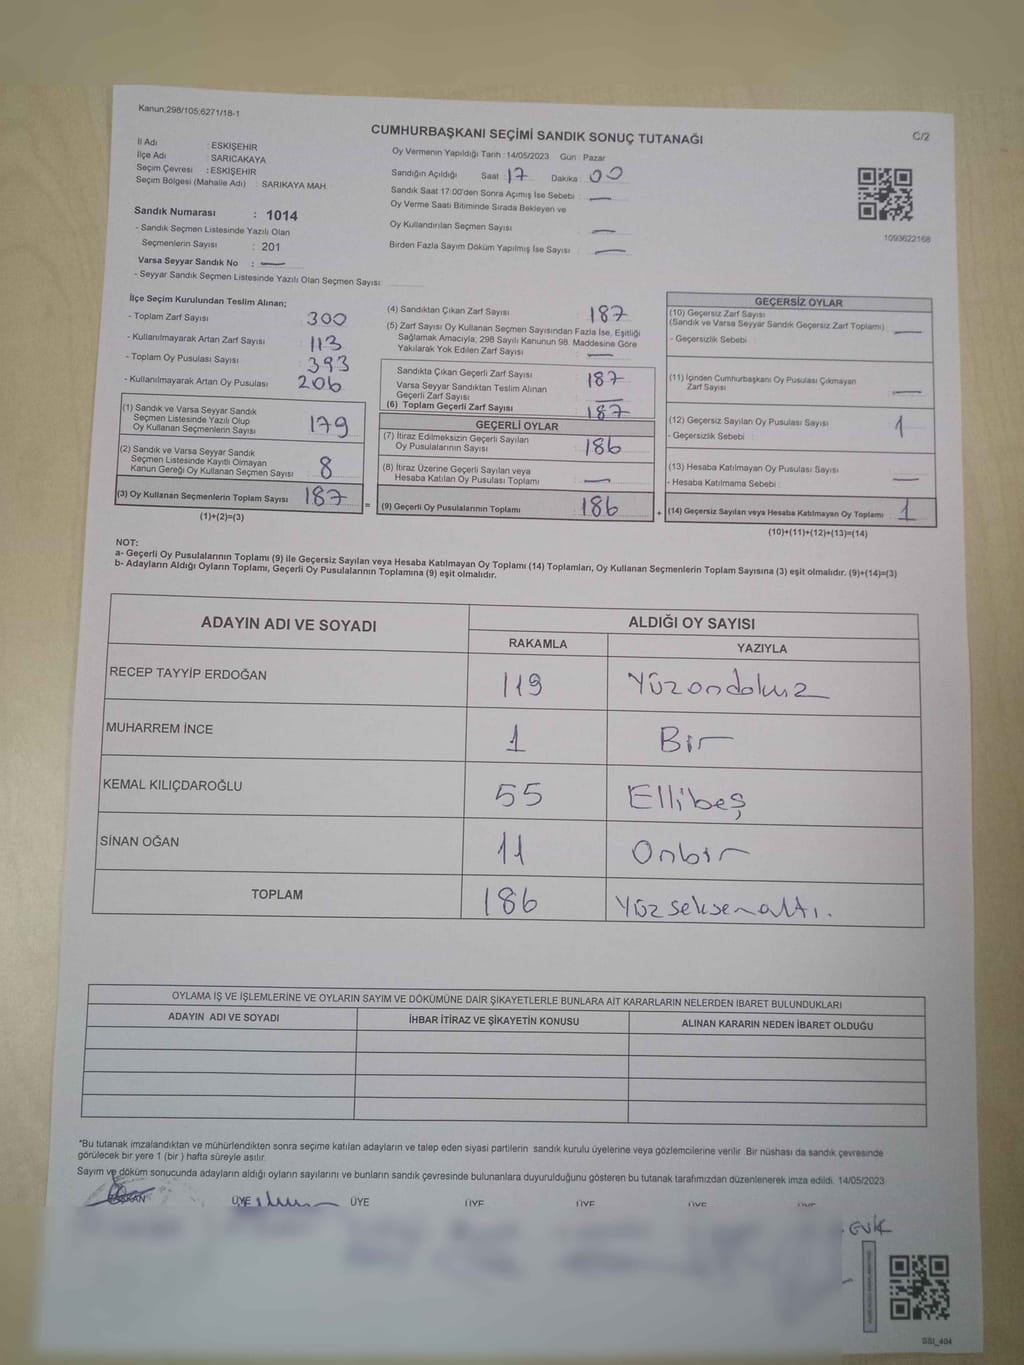 Kanun:298/105;6271/18-1
CUMHURBAŞKANI SEÇİMİ SANDIK SONUÇ TUTANAĞI
C/2
İl Adı : ESKİŞEHİR
İlçe Adı : SARICAKAYA
Seçim Çevresi : ESKİŞEHİR
Seçim Bölgesi (Mahalle Adı) : SARIKAYA MAH
Sandık Numarası : 1014
- Sandık Seçmen Listesinde Yazılı Olan
Seçmenlerin Sayısı : 201
Varsa Seyyar Sandık No : —
- Seyyar Sandık Seçmen Listesinde Yazılı Olan Seçmen Sayısı:
Oy Vermenin Yapıldığı Tarih :14/05/2023 Gün : Pazar
Sandığın Açıldığı Saat : 17 Dakika : 00
Sandık Saat 17:00'den Sonra Açımış İse Sebebi : —
Oy Verme Saati Bitiminde Sırada Bekleyen ve
Oy Kullandırılan Seçmen Sayısı : —
Birden Fazla Sayım Döküm Yapılmış İse Sayısı : —
1093622168
İlçe Seçim Kurulundan Teslim Alınan;
- Toplam Zarf Sayısı : 300
- Kullanılmayarak Artan Zarf Sayısı : 113
- Toplam Oy Pusulası Sayısı : 393
- Kullanılmayarak Artan Oy Pusulası : 206
(1) Sandık ve Varsa Seyyar Sandık
Seçmen Listesinde Yazılı Olup
Oy Kullanan Seçmenlerin Sayısı : 179
(2) Sandık ve Varsa Seyyar Sandık
Seçmen Listesinde Kayıtlı Olmayan
Kanun Gereği Oy Kullanan Seçmen Sayısı : 8
(3) Oy Kullanan Seçmenlerin Toplam Sayısı : 187
(1)+(2)=(3)
(4) Sandıktan Çıkan Zarf Sayısı : 187
(5) Zarf Sayısı Oy Kullanan Seçmen Sayısından Fazla İse, Eşitliği
Sağlamak Amacıyla; 298 Sayılı Kanunun 98. Maddesine Göre
Yakılarak Yok Edilen Zarf Sayısı : —
Sandıkta Çıkan Geçerli Zarf Sayısı : 187
Varsa Seyyar Sandıktan Teslim Alınan
Geçerli Zarf Sayısı : —
(6) Toplam Geçerli Zarf Sayısı : 187
GEÇERLİ OYLAR
(7) İtiraz Edilmeksizin Geçerli Sayılan
Oy Pusulalarının Sayısı : 186
(8) İtiraz Üzerine Geçerli Sayılan veya
Hesaba Katılan Oy Pusulası Toplamı : —
= (9) Geçerli Oy Pusulalarının Toplamı : 186
GEÇERSİZ OYLAR
(10) Geçersiz Zarf Sayısı
(Sandık ve Varsa Seyyar Sandık Geçersiz Zarf Toplamı) : —
- Geçersizlik Sebebi :
(11) İçinden Cumhurbaşkanı Oy Pusulası Çıkmayan
Zarf Sayısı : —
(12) Geçersiz Sayılan Oy Pusulası Sayısı : 1
- Geçersizlik Sebebi :
(13) Hesaba Katılmayan Oy Pusulası Sayısı : —
- Hesaba Katılmama Sebebi :
+ (14) Geçersiz Sayılan veya Hesaba Katılmayan Oy Toplamı : 1
(10)+(11)+(12)+(13)=(14)
NOT:
a- Geçerli Oy Pusulalarının Toplamı (9) ile Geçersiz Sayılan veya Hesaba Katılmayan Oy Toplamı (14) Toplamları, Oy Kullanan Seçmenlerin Toplam Sayısına (3) eşit olmalıdır. (9)+(14)=(3)
b- Adayların Aldığı Oyların Toplamı, Geçerli Oy Pusulalarının Toplamına (9) eşit olmalıdır.
ADAYIN ADI VE SOYADI ALDIĞI OY SAYISI
RAKAMLA YAZIYLA
RECEP TAYYİP ERDOĞAN 119 Yüzondokuz
MUHARREM İNCE 1 Bir
KEMAL KILIÇDAROĞLU 55 Ellibeş
SİNAN OĞAN 11 Onbir
TOPLAM 186 Yüzseksenaltı.
OYLAMA İŞ VE İŞLEMLERİNE VE OYLARIN SAYIM VE DÖKÜMÜNE DAİR ŞİKAYETLERLE BUNLARA AİT KARARLARIN NELERDEN İBARET BULUNDUKLARI
ADAYIN ADI VE SOYADI İHBAR İTİRAZ VE ŞİKAYETİN KONUSU ALINAN KARARIN NEDEN İBARET OLDUĞU
*Bu tutanak imzalandıktan ve mühürlendikten sonra seçime katılan adayların ve talep eden siyasi partilerin sandık kurulu üyelerine veya gözlemcilerine verilir. Bir nüshası da sandık çevresinde
görülecek bir yere 1 (bir ) hafta süreyle asılır.
Sayım ve döküm sonucunda adayların aldığı oyların sayılarını ve bunların sandık çevresinde bulunanlara duyurulduğunu gösteren bu tutanak tarafımızdan düzenlenerek imza edildi. 14/05/2023
BAŞKAN ÜYE ÜYE ÜYE ÜYE ÜYE ÜYE
SSI_404